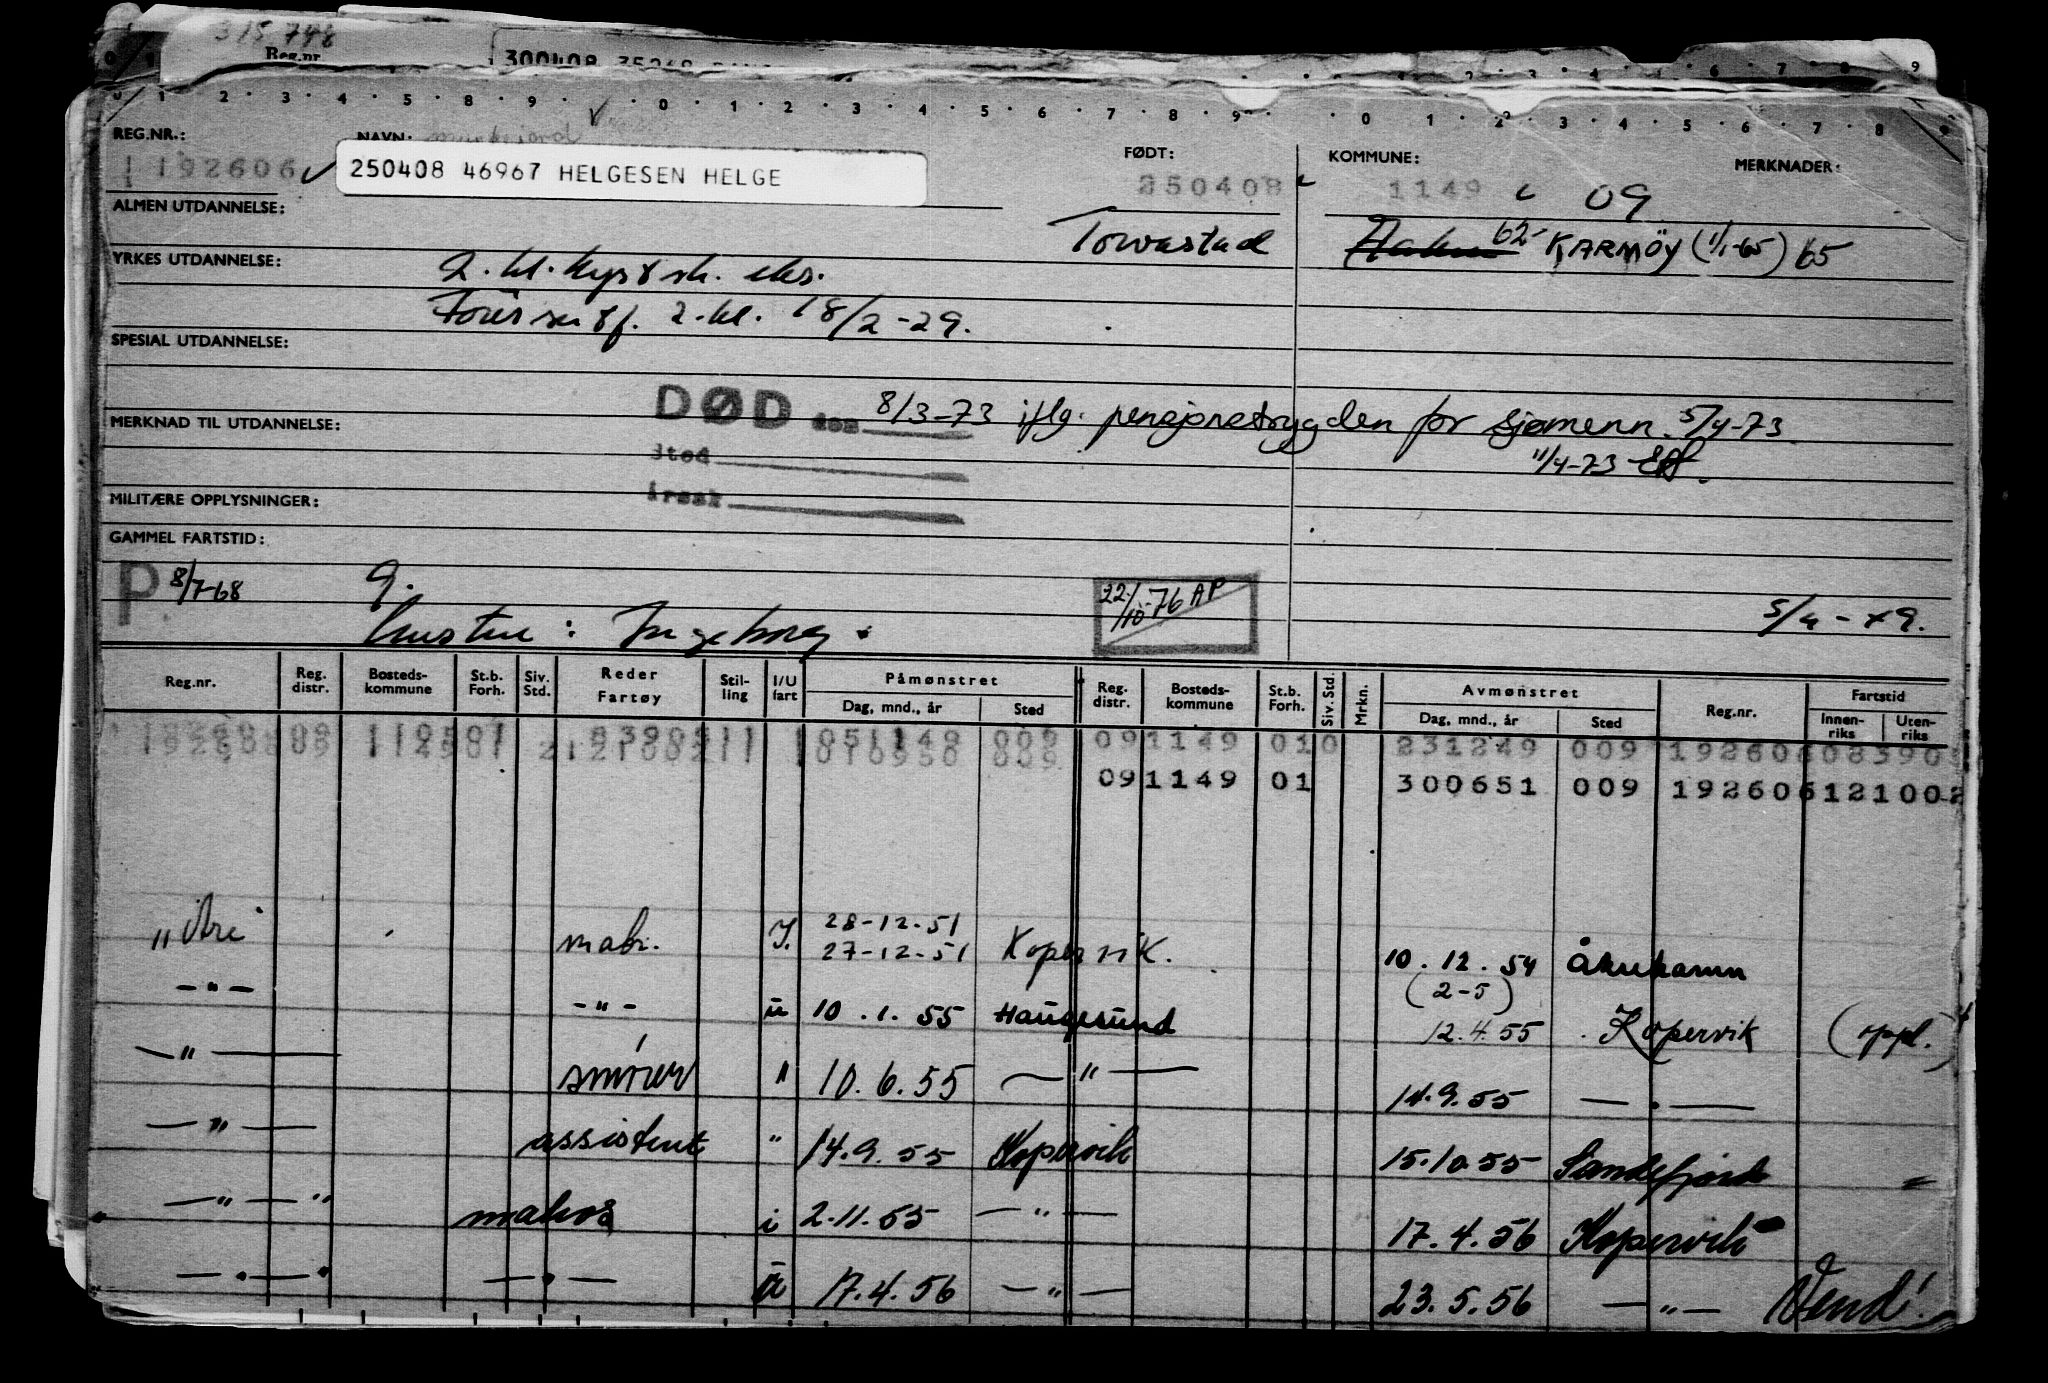 315.748
Reg.nr.
300408 35268
0 1 2 3 4 5 6 7 8 9
1 2 3 4 5 6 7 8 9 0 1 2 3 4 5 6 7 8 9 0 1 2 3 4 5 6 7 8 9
REG.NR.: NAVN: FØDT: KOMMUNE: MERKNADER:
192606 250408 46967 HELGESEN HELGE 250408 1149 09
ALMEN UTDANNELSE: Torvastad 62- KARMÖY (1/1-65) 65
YRKES UTDANNELSE: 2. kl. kystsk. eks.
2. kl. 18/2-29.
SPESIAL UTDANNELSE:
DØD den 8/3-73 iflg. pensjonstrygden for sjømenn. 5/4-73
MERKNAD TIL UTDANNELSE:
Sted 11/4-73
MILITÆRE OPPLYSNINGER: Årsak
GAMMEL FARTSTID:
P 8/7-68 9. 22/10-76 AP
Hustru: Ingeborg.
Reg.nr. Reg. distr. Bosteds-kommune St.b. Forh. Siv. Std. Reder Fartøy Stil-ling I/U fart Påmønstret Dag, mnd., år Sted Reg. distr. Bosteds-kommune St.b. Forh. Siv. Std. Mrkn. Avmønstret Dag, mnd., år Sted Reg.nr. Fartstid Innen-riks Uten-riks
09 1149 01 0 231249 009 192606 08390
09 1149 01 300651 009 192606 121002
28-12-51
" matr. I. 27-12-51 Kopervik. 10.12.54 Åkrehamn
(2-5)
-"- -"- u 10.1.55 Haugesund 12.4.55 Kopervik (oppl.)
-"- smörer " 10.6.55 -"- 14.9.55 -"-
-"- assistent " 14.9.55 Kopervik 15.10.55 Sandefjord
-"-" matros i 2.11.55 -"- 17.4.56 Kopervik
-"-" -"- u 17.4.56 -"- 23.5.56 -"- Vend!